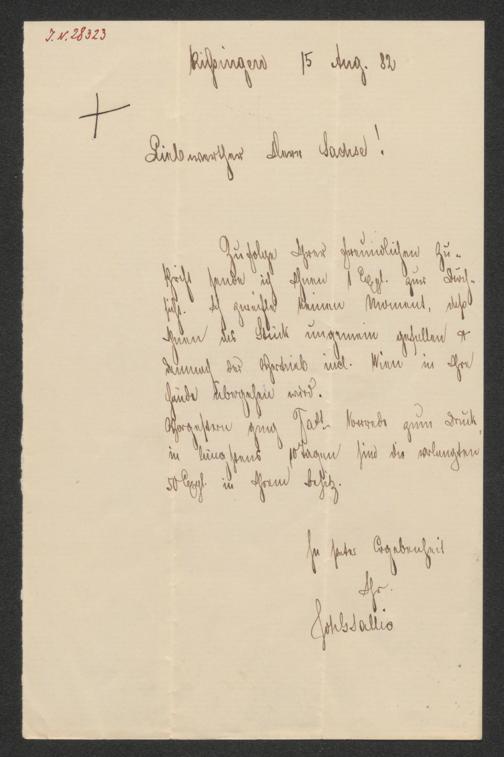 J.N. 28323
Kissingen 15 Aug. 82
Liebwerther Herr Sachse!
Zufolge Ihrer freundlichen Zu-
schrift sende ich Ihnen 1 Expl. zur Durch-
sicht. Ich zweifle keinen Moment, daß
Ihnen das Stück ungemein gefallen &
demnach der Vertrieb incl. Wien in Ihre
Hände übergehen wird.
Vorgestern ging Vorrede zum Druck,
in längstens 10 Tagen sind die verlangten
50 Expl. in Ihrem Besitz.
In steter Ergebenheit
Ihr